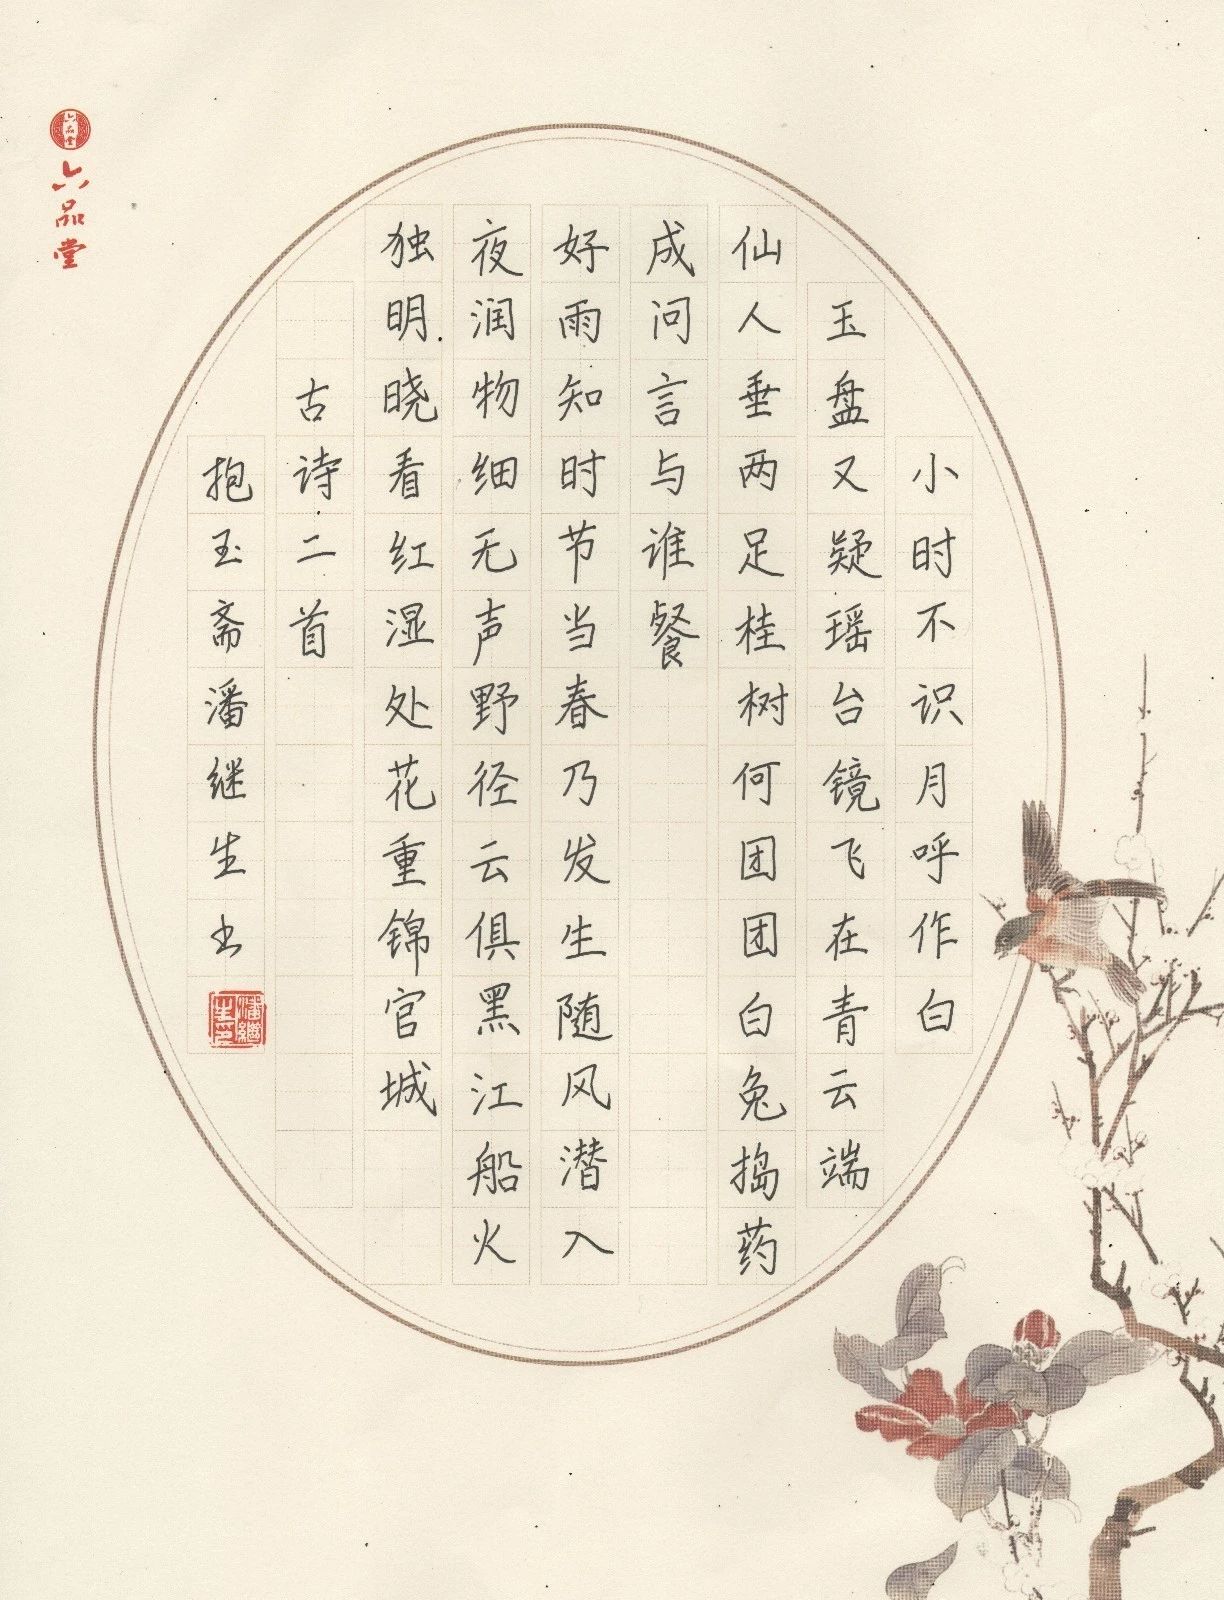 小时不识月呼作白
玉盘又疑瑶台镜飞在青云端
仙人垂两足桂树何团团白兔捣药
成问言与谁餐
好雨知时节当春乃发生随风潜入
夜润物细无声野径云俱黑江船火
独明晓看红湿处花重锦官城
古诗二首
抱玉斋潘继生书
潘继生印
六品堂
六品堂